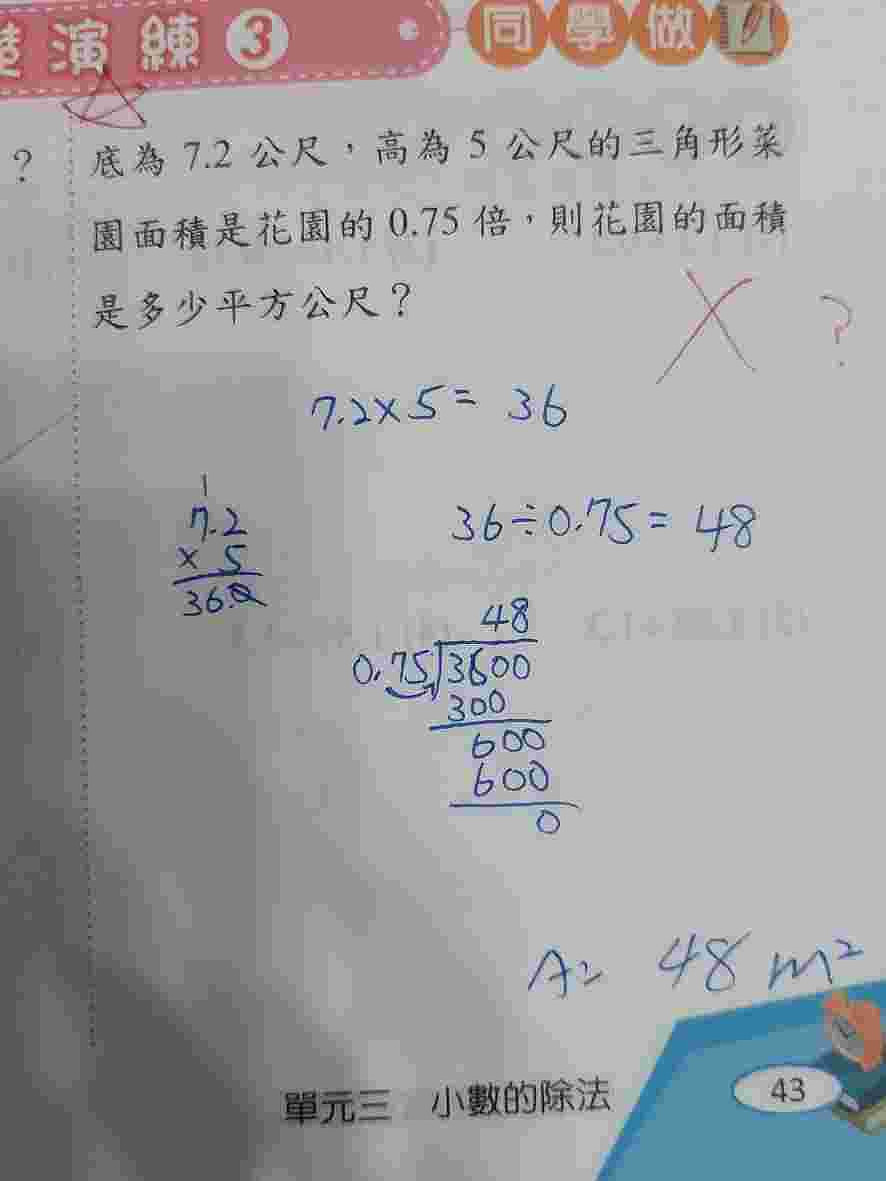 演練 3 同學做
? 底為 7.2 公尺，高為 5 公尺的三角形菜
園面積是花園的 0.75 倍，則花園的面積
是多少平方公尺？
?
7.2×5= 36
1
7.2
× 5
36.0
36÷0.75= 48
48
0.75 3600
300
600
600
0
A: 48 m²
單元三 小數的除法 43